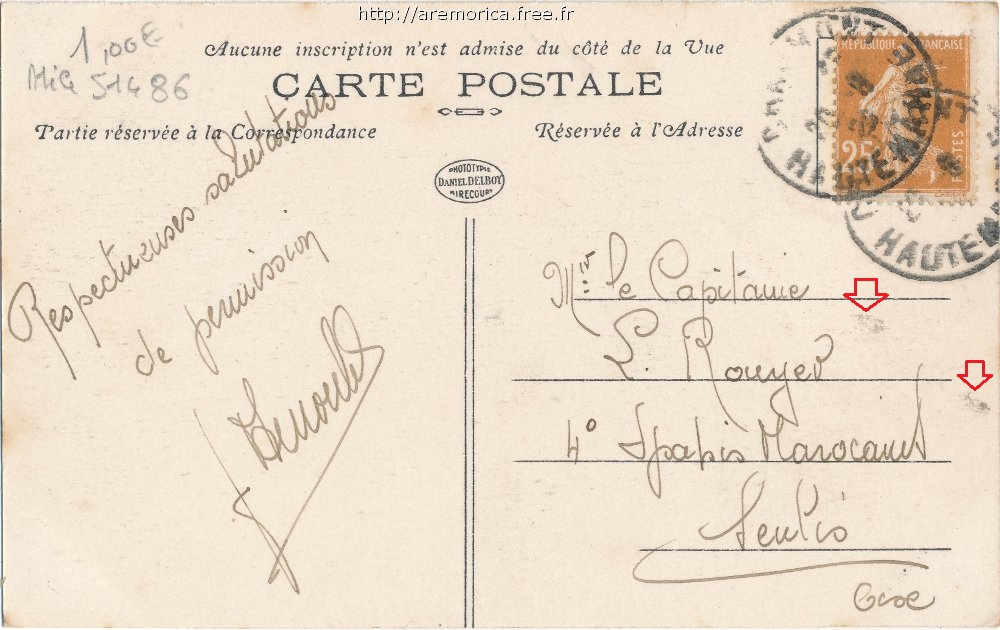 http://aremorica.free.fr
1,00€
51486
Aucune inscription n'est admise du côté de la Vue
CARTE POSTALE
Partie réservée à la Correspondance
Réservée à l'Adresse
PHOTOTYPIE
DANIEL DELBOY
MIRECOURT
RÉPUBLIQUE FRANÇAISE
25
POSTES
HAUTE-MARNE
HAUTE-MA
Respectueuses salutations
de permission
Mr le Capitaine
L. Rouyer
4° Spahis Marocains
Senlis
Oise